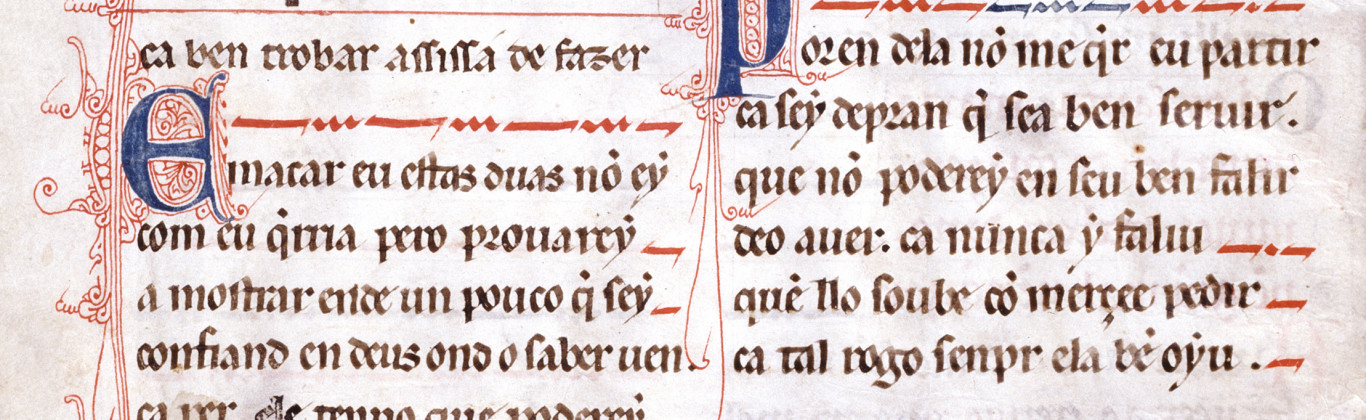 ca ben trobar assissa de fazer
E macar eu estas duas nō ey
com eu q̄rria pero prouarey
a mostrar ende un pouco q̄ sey
confiand en deus ond o saber uen.
ca per ele tenno que poderey
Poren dela nō me q̄r eu partir
ca sey depran q̄ sea ben seruir.
que nō poderey en seu ben falir
deo auer. ca nunca y faliu
quē llo soube cō merçee pedir
ca tal rogo senpr ela bē oyu.